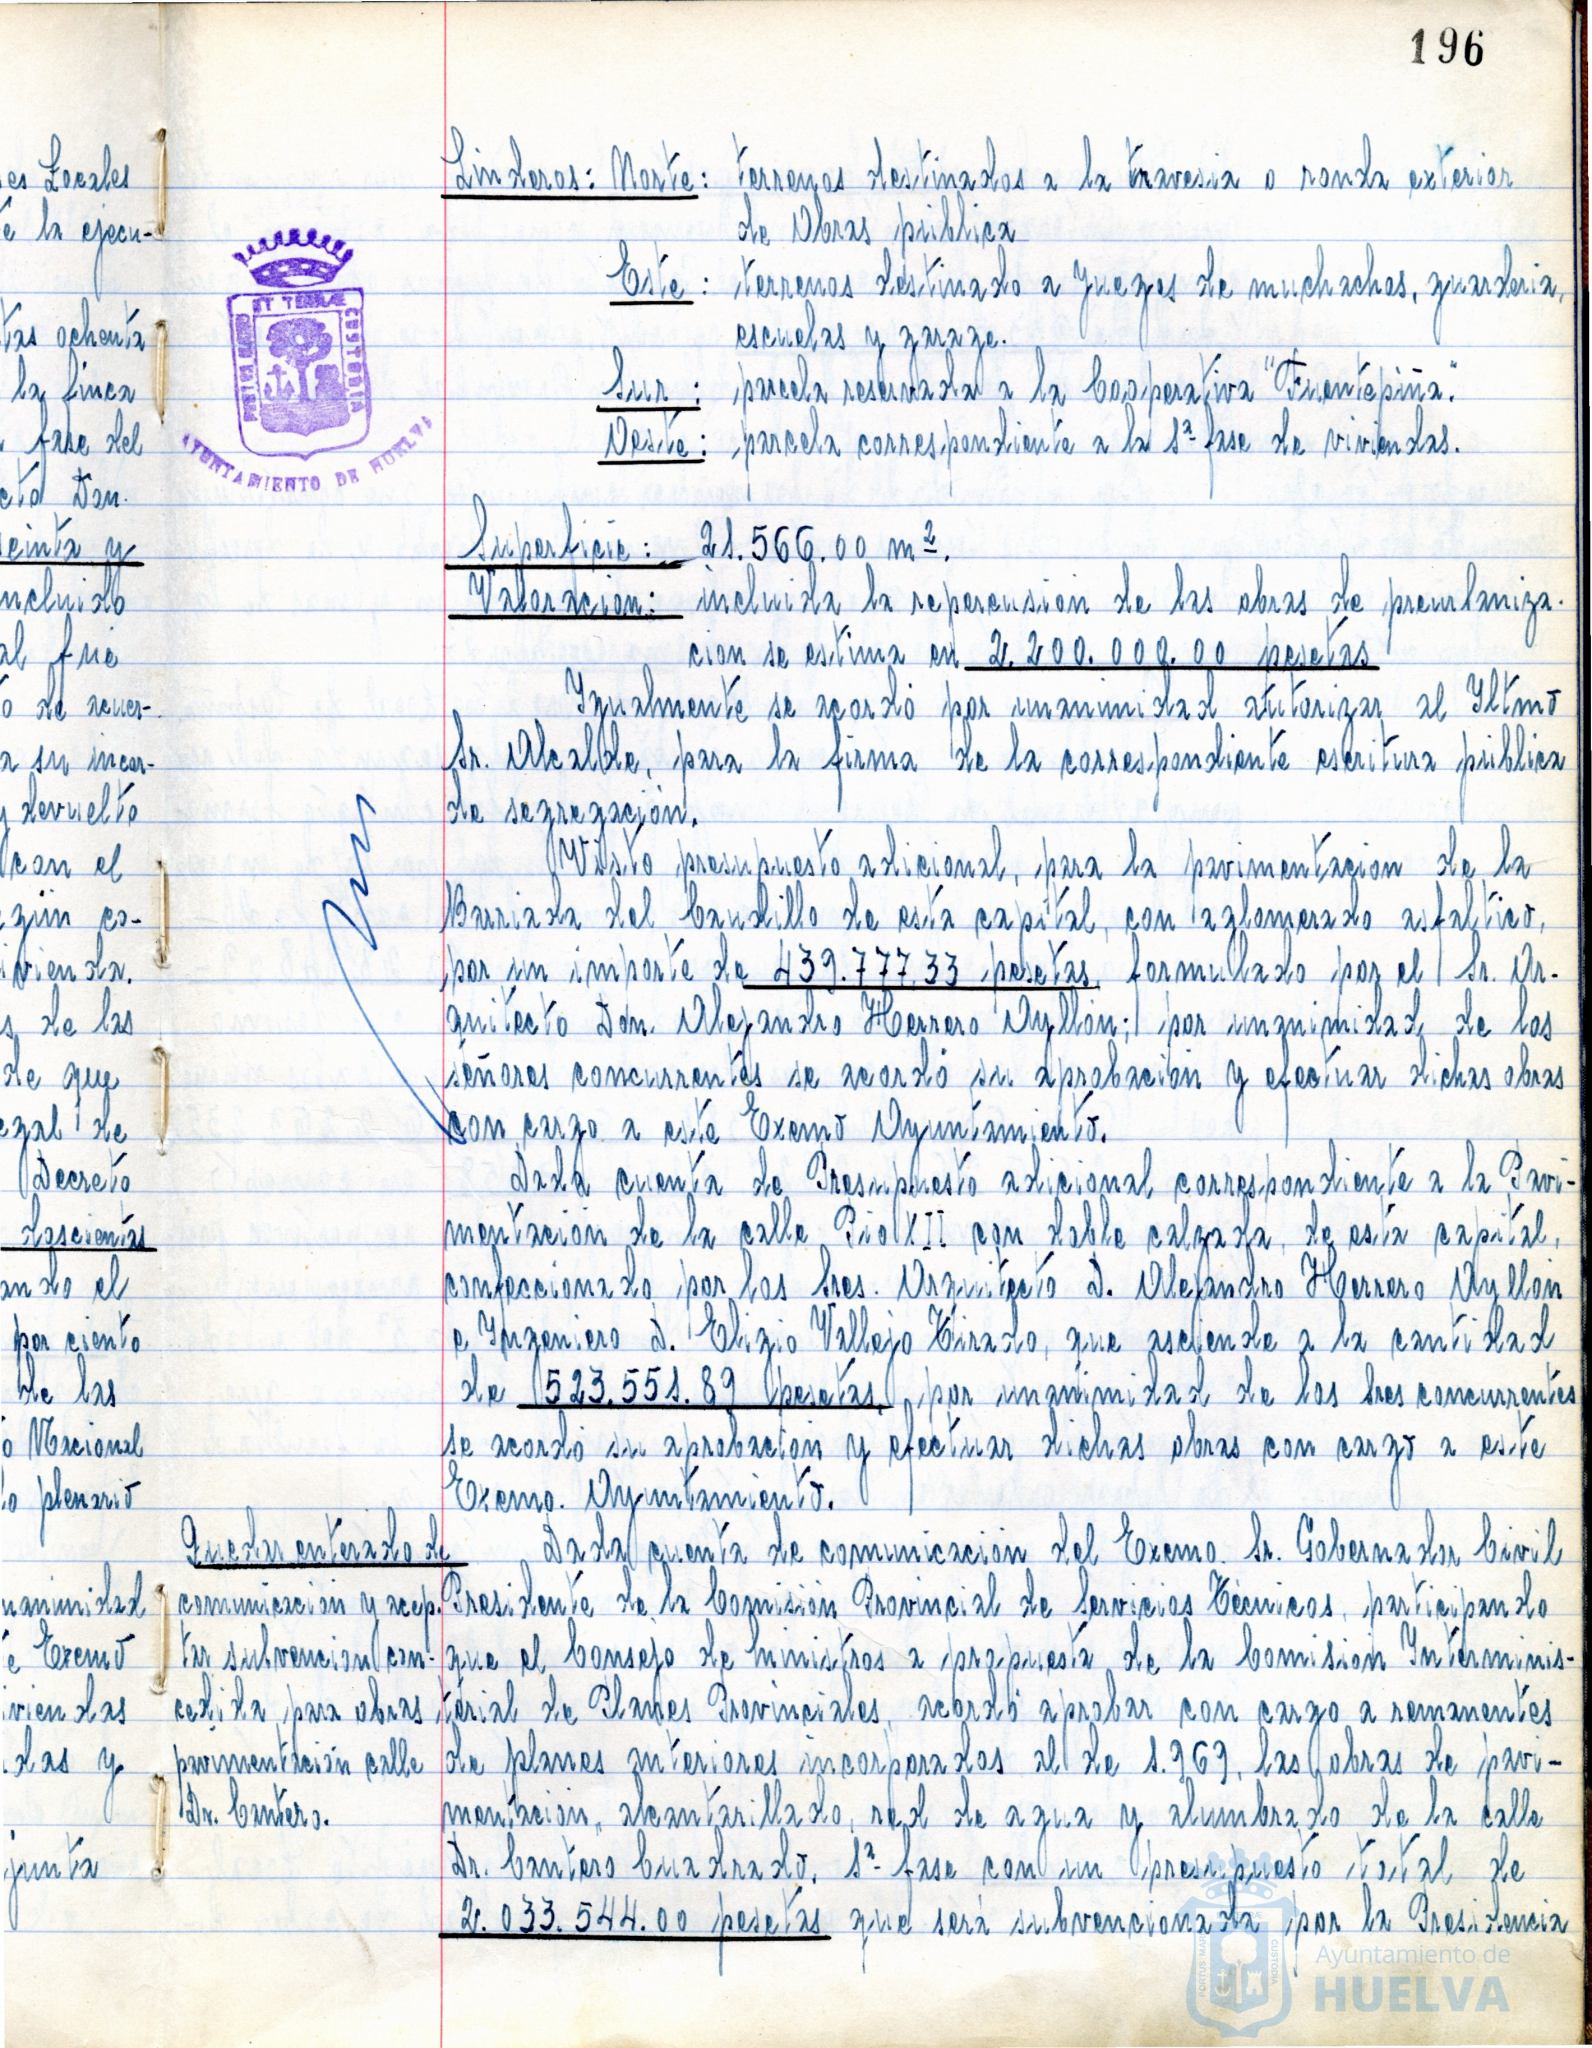 196
es Locales
te la ejecu-
tas ochenta
la finca
fase del
cto Don.
seinta y
ncluido
al fue
to de acuer-
a su incor-
y devuelto
con el
egún co-
ivienda.
s de las
de que
egal de
Decreto
doscientas
ando el
por ciento
de las
o Nacional
to plenario
nanimidad
e Excmo
iviendas
das y
junta
PORTUS MARIS ET TERRAE CUSTODIA
AYUNTAMIENTO DE HUELVA
Linderos: Norte: terrenos destinados a la travesia o ronda exterior
de Obras pública
Este: terrenos destinado a Juegos de muchachos, guarderia,
escuelas y garage.
Sur: parcela reservada a la Cooperativa "Fuentepiña".
Oeste: parcela correspondiente a la 1ª fase de viviendas.
Superficie: 21.566.00 m².
Valoración: incluida la repercusión de las obras de preurbaniza-
ción se estima en 2.200.000.00 pesetas
Igualmente se acordó por unanimidad autorizar al Iltmo
Sr. Alcalde, para la firma de la correspondiente escritura pública
de segregación.
Visto presupuesto adicional, para la pavimentación de la
Barriada del Caudillo de esta capital, con aglomerado asfaltico,
por un importe de 439.777,33 pesetas, formulado por el Sr. Ar-
quitecto Don. Alejandro Herrero Ayllón; por unanimidad de los
señores concurrentes se acordó su aprobación y efectuar dichas obras
con cargo a este Excmo Ayuntamiento.
Dada cuenta de Presupuesto adicional correspondiente a la Pavi-
mentación de la calle Pio XII con doble calzada, de esta capital,
confeccionado por los Sres. Arquitecto D. Alejandro Herrero Ayllón
e Ingeniero D. Eligio Vallejo Tirado, que asciende a la cantidad
de 523.551.89 pesetas, por unanimidad de los Sres concurrentes
se acordó su aprobación y efectuar dichas obras con cargo a este
Excmo. Ayuntamiento.
Quedar enterado de
comunicación y acep-
tar subvencion con-
cedida para obras
pavimentación calle
Dr. Cantero.
Dada cuenta de comunicación del Excmo. Sr. Gobernador Civil
Presidente de la Comisión Provincial de Servicios Técnicos, participando
que el Consejo de Ministros a propuesta de la Comisión Interminis-
terial de Planes Provinciales, acordó aprobar con cargo a remanentes
de planes anteriores incorporados al de 1.969, las obras de pavi-
mentación, alcantarillado, red de agua y alumbrado de la calle
Dr. Cantero Cuadrado, 1ª fase con un presupuesto total de
2.033.544.00 pesetas que será subvencionada por la Presidencia
Ayuntamiento de
HUELVA